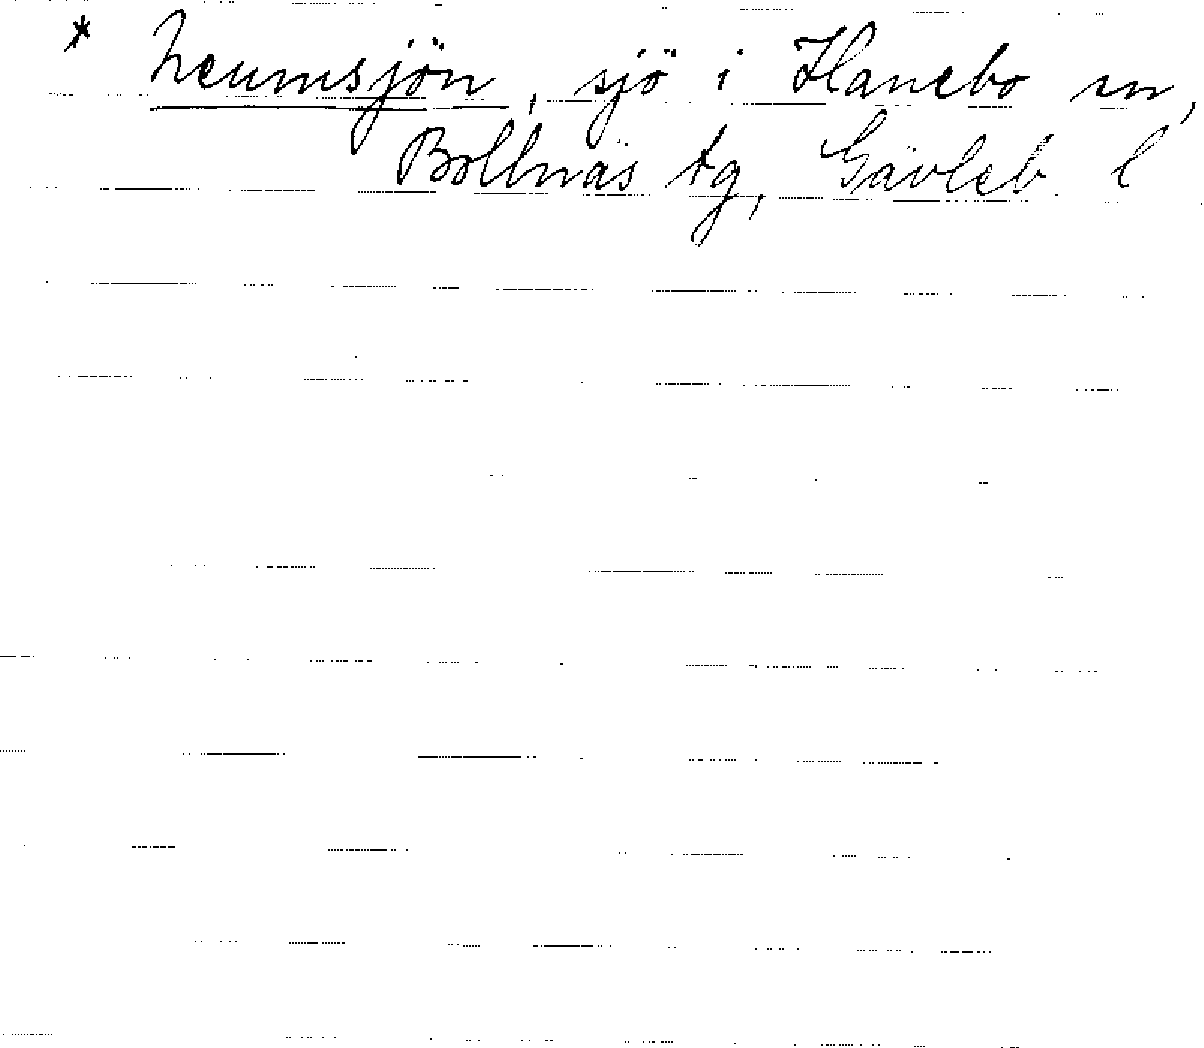 * Neumsjön, sjö i Hanebo sn,
Bollnäs tg, Gävleb. l